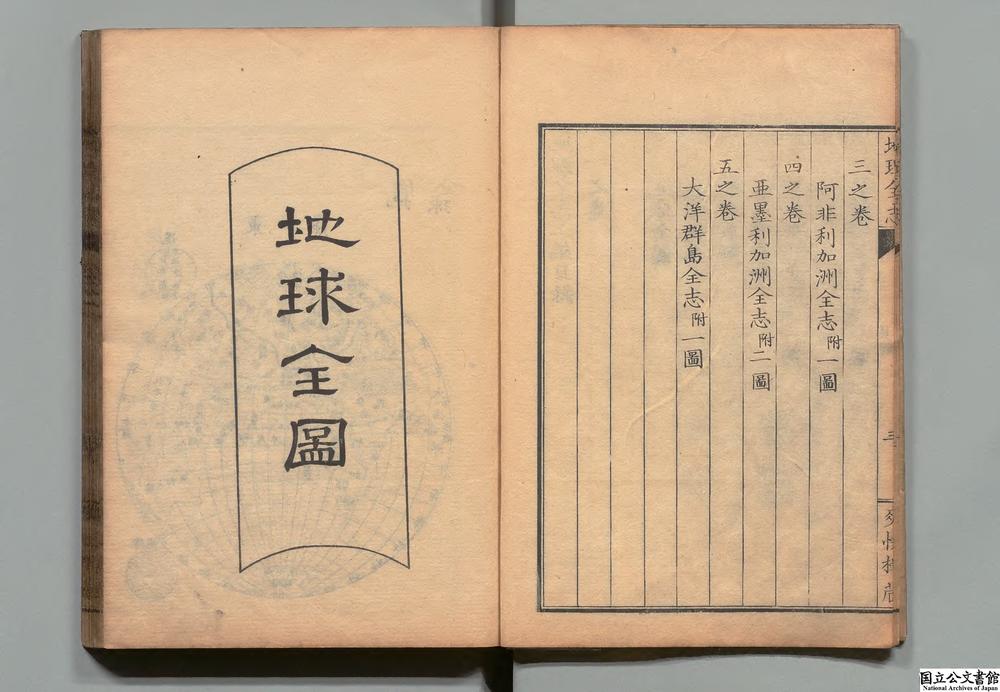 地理全志
三
爽快樓藏
三之卷
阿非利加洲全志附一圖
四之卷
亜墨利加洲全志附二圖
五之卷
大洋群島全志附一圖
地球全圖
国立公文書館
National Archives of Japan